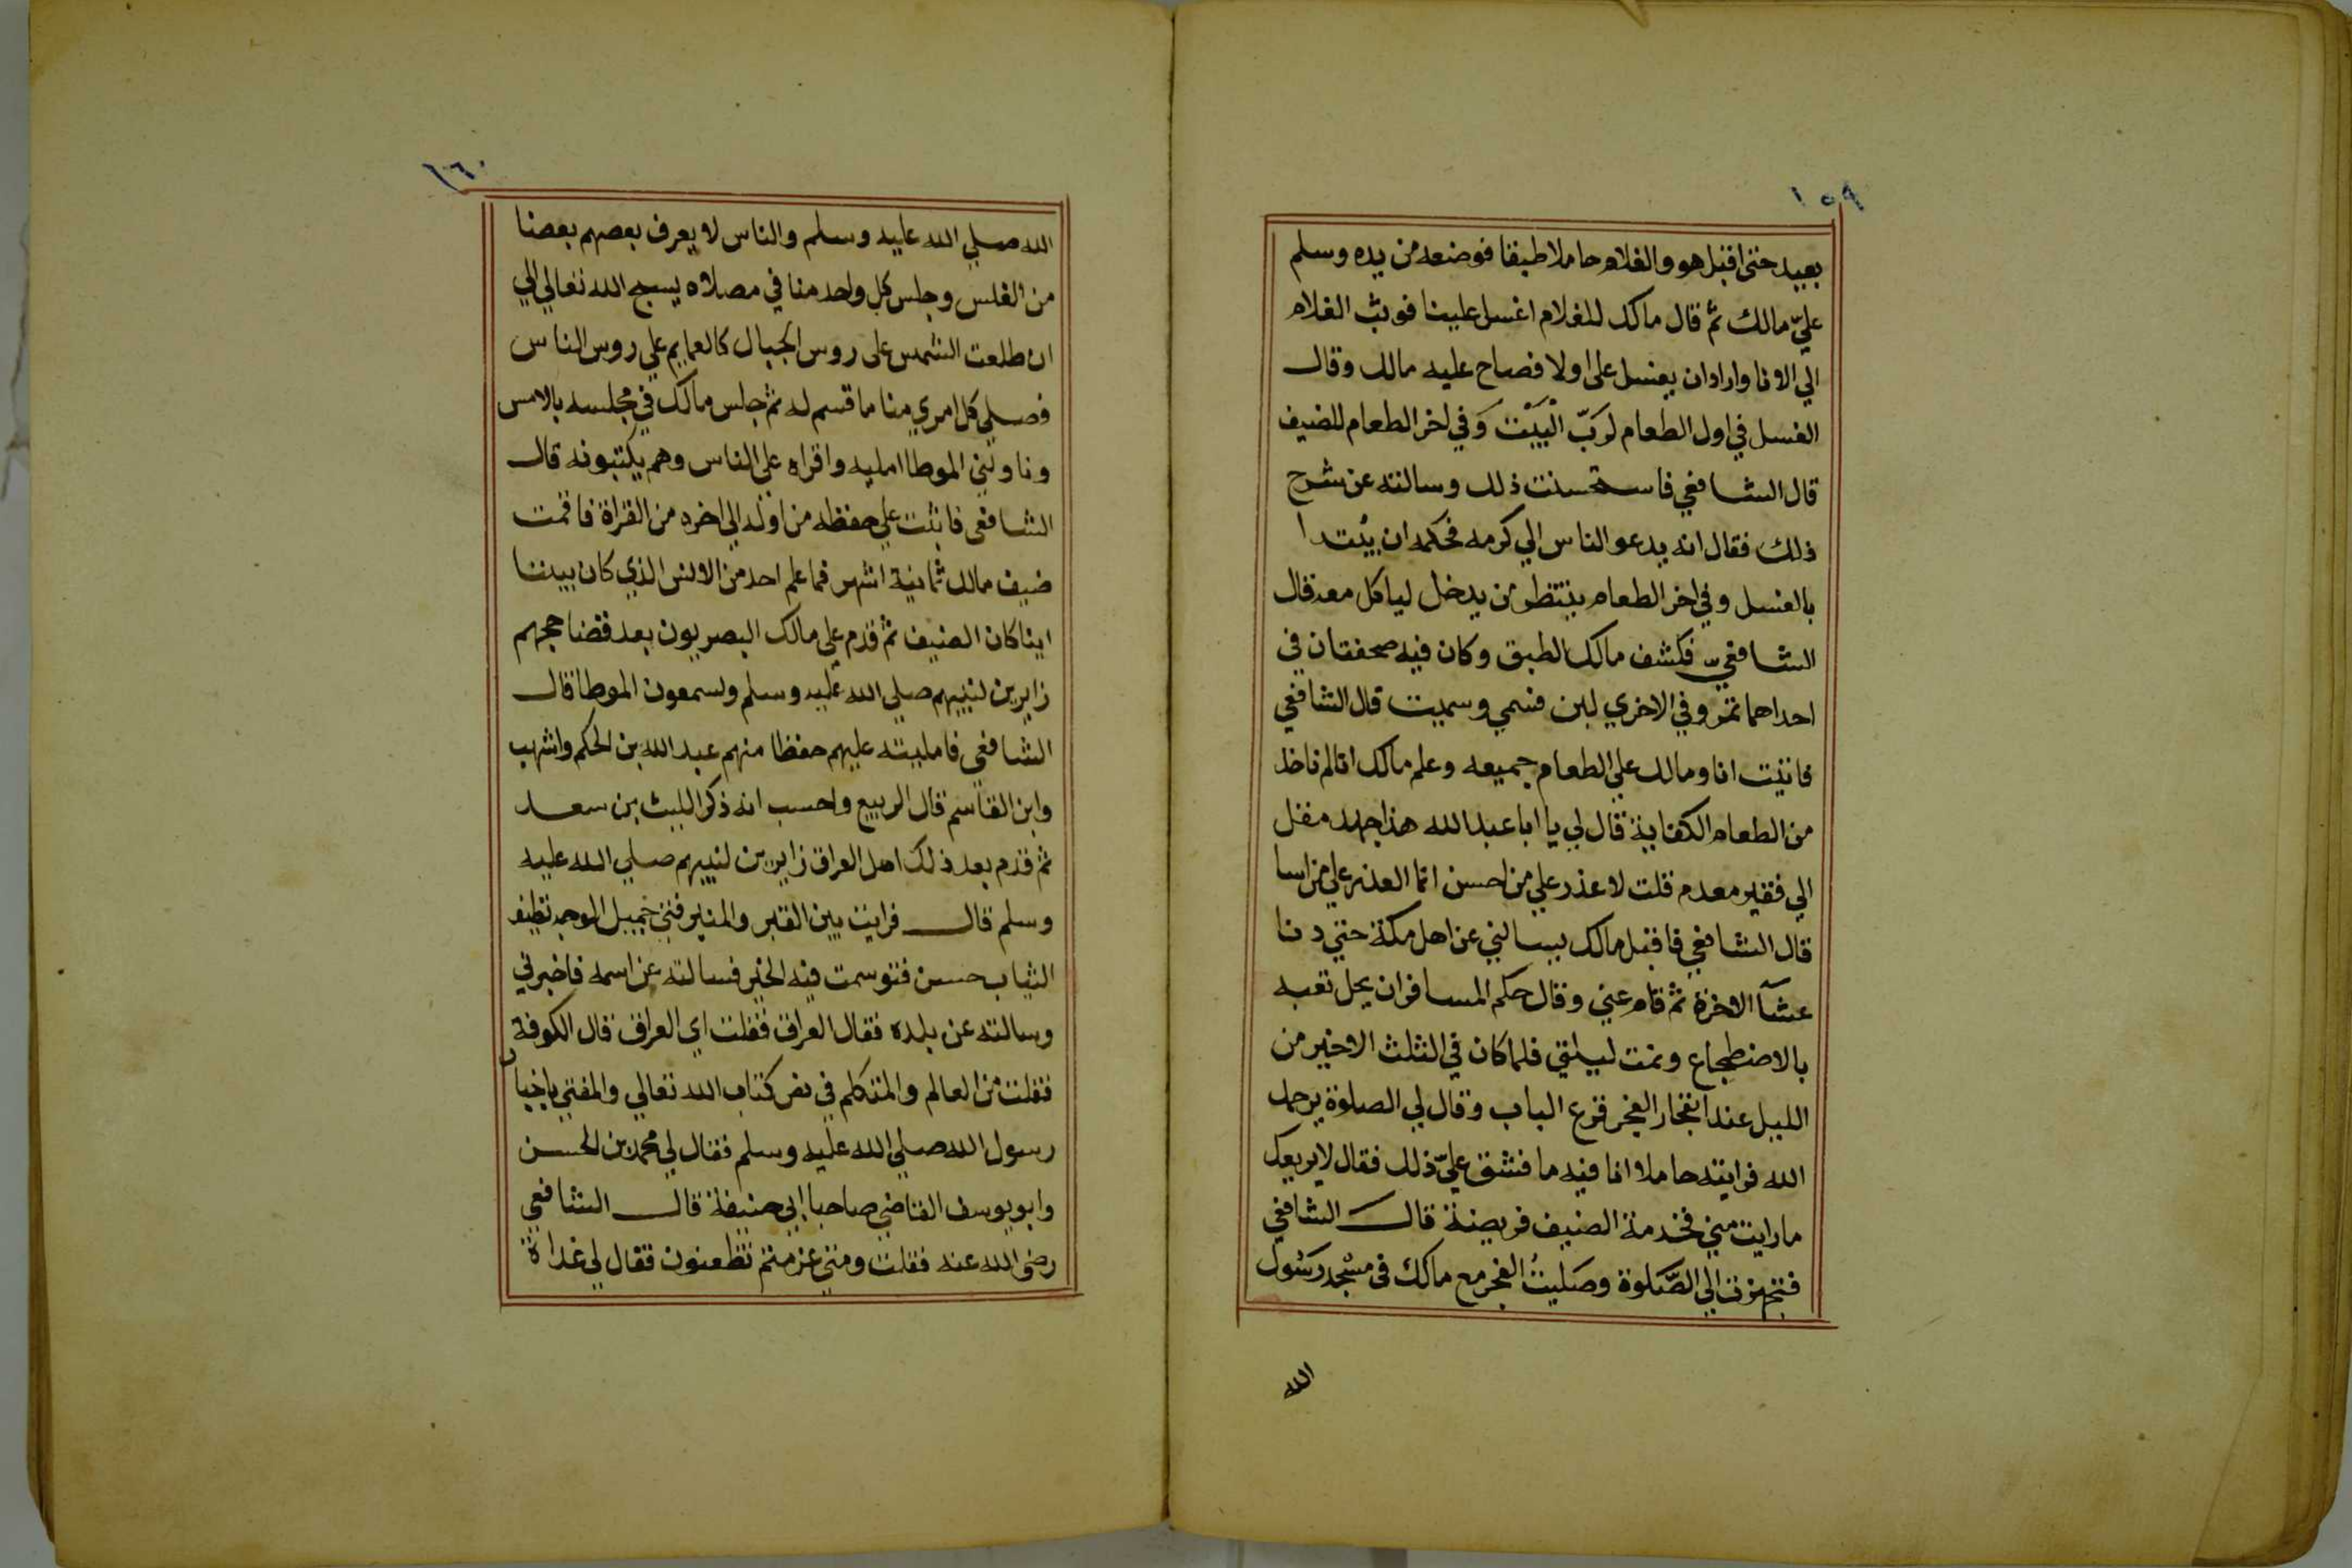 ١٥٩
بعيد حتى اقبل هو والغلام حاملا طبقا فوضعه من يده وسلم
عليّ مالك ثم قال مالك للغلام اغسل علينا فوثب الغلام
الي الانا واراد ان يغسل على اولا فصاح عليه مالك وقال
الغسل في اول الطعام لرَبّ الْبَيْت وَفي اخر الطعام للضيف
قال الشافعي فاستحسنت ذلك وسالته عن شرح
ذلك فقال انه يدعو الناس الي كرمه فحكمه ان يُبتدا
بالغسل وفي اخر الطعام ينتظر من يدخل لياكل معه قال
الشافعيّ فكشف مالك الطبق وكان فيه صحفتان في
احداهما تمر وفي الاخري لبن فسمي وسميت قال الشافعي
فاتيت انا ومالك علي الطعام جميعه وعلم مالك انا لم ناخذ
من الطعام الكفاية قال لي يا ابا عبد الله هذا جهد مقل
الي فقير معدم قلت لا عذر علي من احسن انما العذر علي من اسا
قال الشافعي فاقبل مالك يسالني عن اهل مكة حتي دنا
عشآ الاخرة ثم قام عني وقال حكم المسافر ان يحل تعبه
بالاضطجاع ونمت ليلتي فلما كان في الثلث الاخير من
الليل عند انفجار الفجر قرع الباب وقال لي الصلوة يرحمك
الله فرايته حاملا انا فيه ما فشق عليّ ذلك فقال لا يريعك
ما رايت مني فخدمة الضيف فريضة قال الشافعي
فتجهزت الي الصَّلوة وصَليتُ الفجر مع مالك فى مسْجد رَسُول
الله
١٦٠
الله صلي الله عليه وسلم والناس لا يعرف بعضهم بعضا
من الغلس وجلس كل واحد منا في مصلاه يسبح الله تعالي الي
ان طلعت الشمس على روس الجبال كالعمايم علي روس الناس
فصلي كل امري منا ما قسم له ثم جلس مالك في مجلسه بالامس
وناولني الموطا امليه واقراه على الناس وهم يكتبونه قال
الشافعى فاتيت علي حفظه من اوله الي اخره من القراة فاقمت
ضيف مالك ثمانية اشهر فما علم احد من الانس الذي كان بيننا
اينا كان الضيف ثم قدم علي مالك البصريون بعد قضا حجهم
زايرين لنبيهم صلي الله عليه وسلم ولسمعون الموطا قال
الشافعي فامليته عليهم حفظا منهم عبد الله بن الحكم واشهب
وابن القاسم قال الربيع واحسب انه ذكر الليث بن سعد
ثم قدم بعد ذلك اهل العراق زايرين لنبيهم صلي الله عليه
وسلم قال فرايت بين القبر والمنبر فتي جميل الوجه نظيف
الثياب حسن فتوسمت فيه الخير فسالته عن اسمه فاخبرني
وسالته عن بلده فقال العراق فقلت اي العراق قال الكوفة
فقلت من العالم والمتكلم في نص كتاب الله تعالي والمفتي باخبار
رسول الله صلي الله عليه وسلم فقال لي محمد بن الحسن
وابو يوسف القاضي صاحبا ابي حنيفة قال الشافعي
رضى الله عنه فقلت ومتي عزمتم تظعنون فقال لي غداة